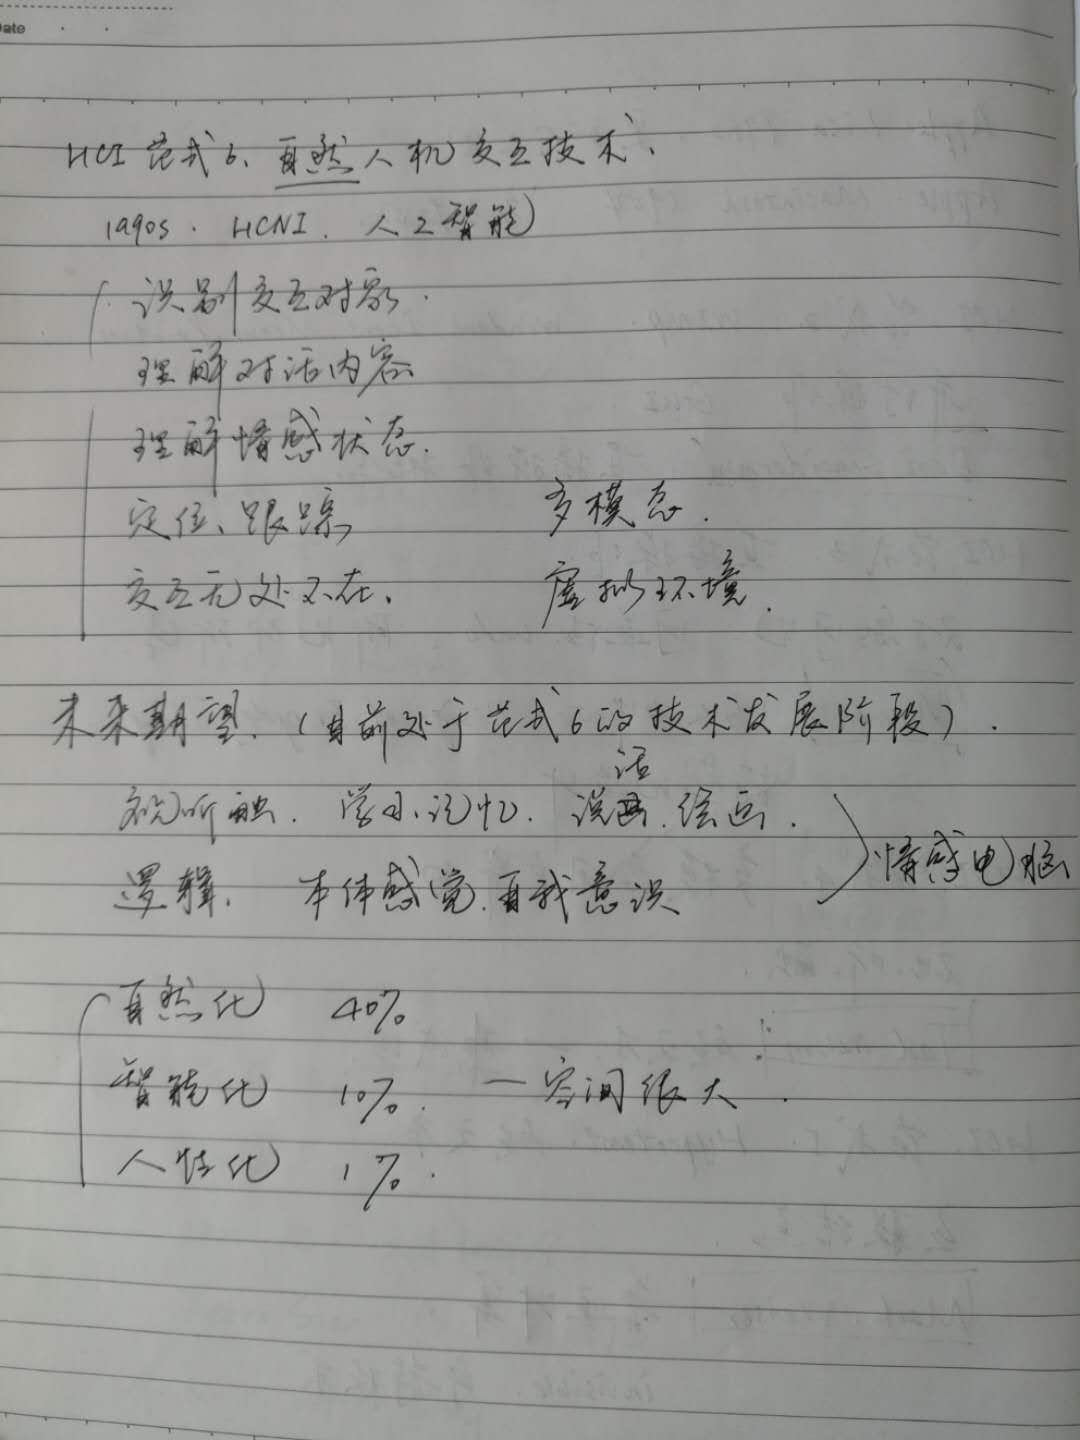 Date
HCI 范式6、自然人机交互技术、
1990s. HCNI. 人工智能
识别交互对象.
理解对话内容
理解情感状态.
定位、跟踪 多模态.
交互无处不在. 虚拟环境.
未来期望.（目前处于范式6的技术发展阶段）.
视听触. 学习、记忆. 说话、绘画.
逻辑. 本体感觉.自我意识 情感电脑
自然化 40%
智能化 10%. —空间很大.
人性化 1%.